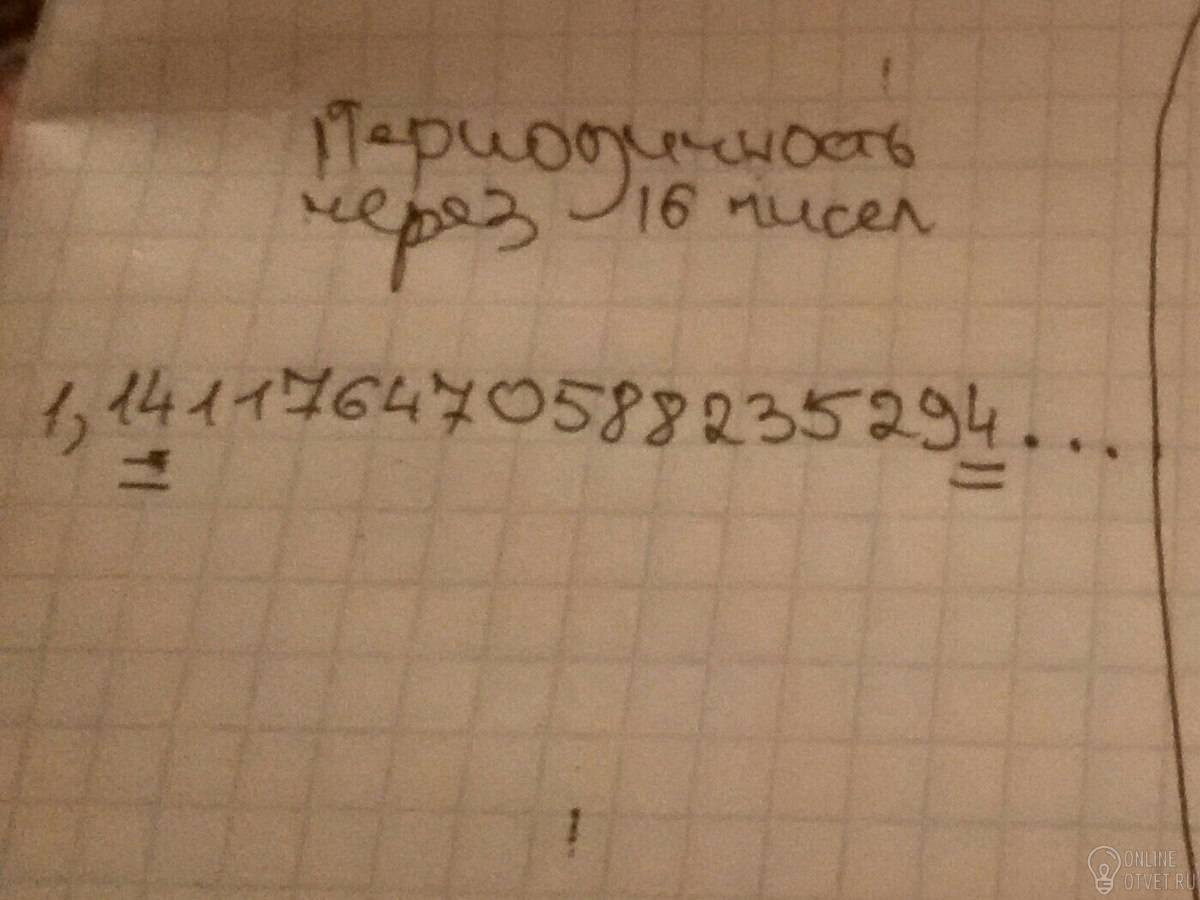 Периодичность
через 16 чисел
1,141176470588235294...
ONLINE
OTVET.RU